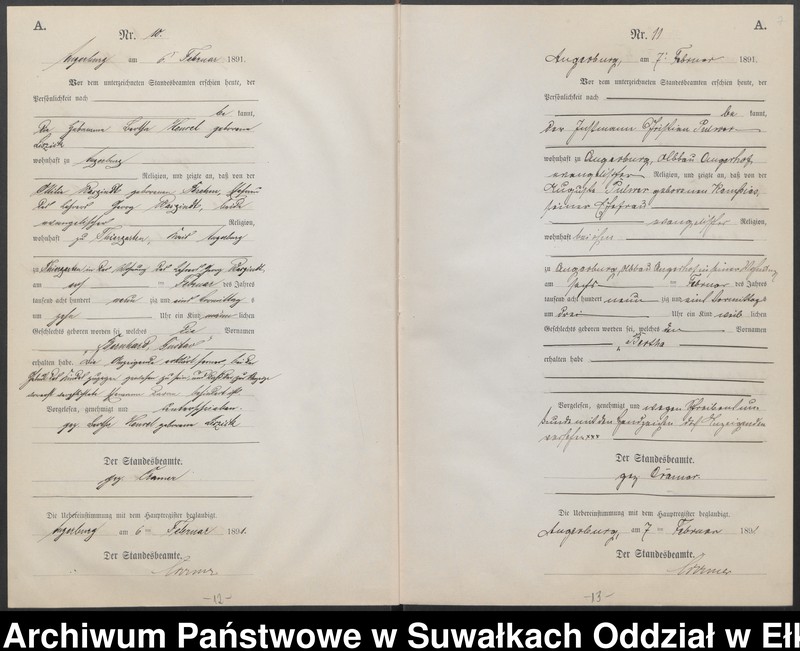 A.
Nr. 10.
Angerburg am 6 Februar 1891.
Vor dem unterzeichneten Standesbeamten erschien heute, der
Persönlichkeit nach
be kannt,
die Hebamme Bertha geborene
wohnhaft zu Angerburg
Religion, und zeigte an, daß von der
geborenen
des Lehrers Georg beide
evangelischer Religion,
wohnhaft zu Thiergarten, Kreis Angerburg
zu Thiergarten in der Wohnung des Lehrers Georg
am Februar des Jahres
tausend acht hundert neun zig und eins Vormittags
um zehn Uhr ein Kind männ lichen
Geschlechts geboren worden sei, welches die Vornamen
Bernhard Gustav
erhalten habe. Die Anzeigende erklärte ferner, bei der
Vorgelesen, genehmigt und unterschrieben.
gez. Bertha geborene
Der Standesbeamte.
gez. Cramer
Die Uebereinstimmung mit dem Hauptregister beglaubigt.
Angerburg am 6 ten Februar 1891.
Der Standesbeamte.
Cramer
-12-
A.
Nr. 11
Angerburg, am 7. Februar 1891.
Vor dem unterzeichneten Standesbeamten erschien heute, der
Persönlichkeit nach
be kannt,
der Instmann Christian
wohnhaft zu Angerburg, Abbau Angerhof
evangelischer Religion, und zeigte an, daß von der
Auguste geborenen
seiner Ehefrau
evangelischer Religion,
wohnhaft bei ihm
zu Angerburg, Abbau Angerhof in seiner Wohnung
am sechs ten Februar des Jahres
tausend acht hundert neun zig und eins Vormittags
um drei Uhr ein Kind weib lichen
Geschlechts geboren worden sei, welches den Vornamen
Bertha
erhalten habe
Vorgelesen, genehmigt und wegen Schreibensun
kunde mit dem Handzeichen des Anzeigenden
versehen xxx
Der Standesbeamte.
gez. Cramer
Die Uebereinstimmung mit dem Hauptregister beglaubigt.
Angerburg, am 7 ten Februar 1891
Der Standesbeamte.
Cramer
-13-
Archiwum Państwowe w Suwałkach Oddział w Ełk